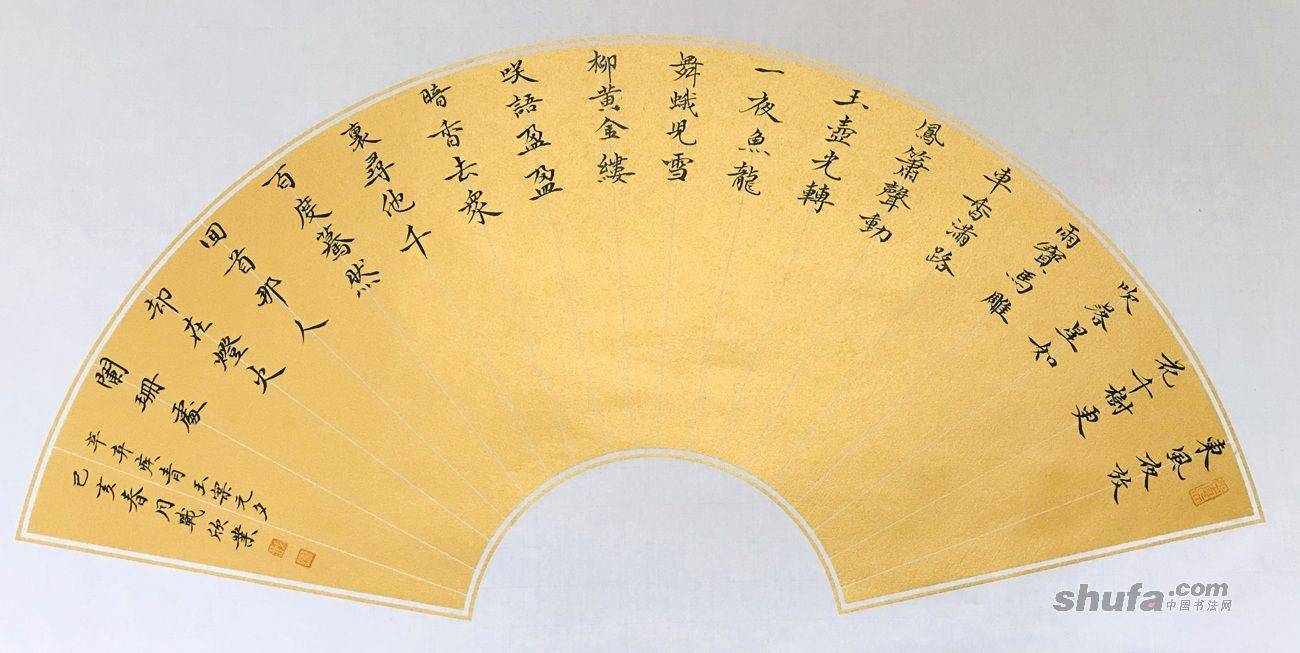 東風夜放
花千樹更
吹落星如
雨寶馬雕
車香滿路
鳳簫聲動
玉壺光轉
一夜魚龍
舞蛾兒雪
柳黃金縷
笑語盈盈
暗香去眾
裏尋他千
百度驀然
回首那人
却在燈火
闌珊處
辛弃疾青玉案元夕
己亥春月戰欣業
shufa.com
中国书法网